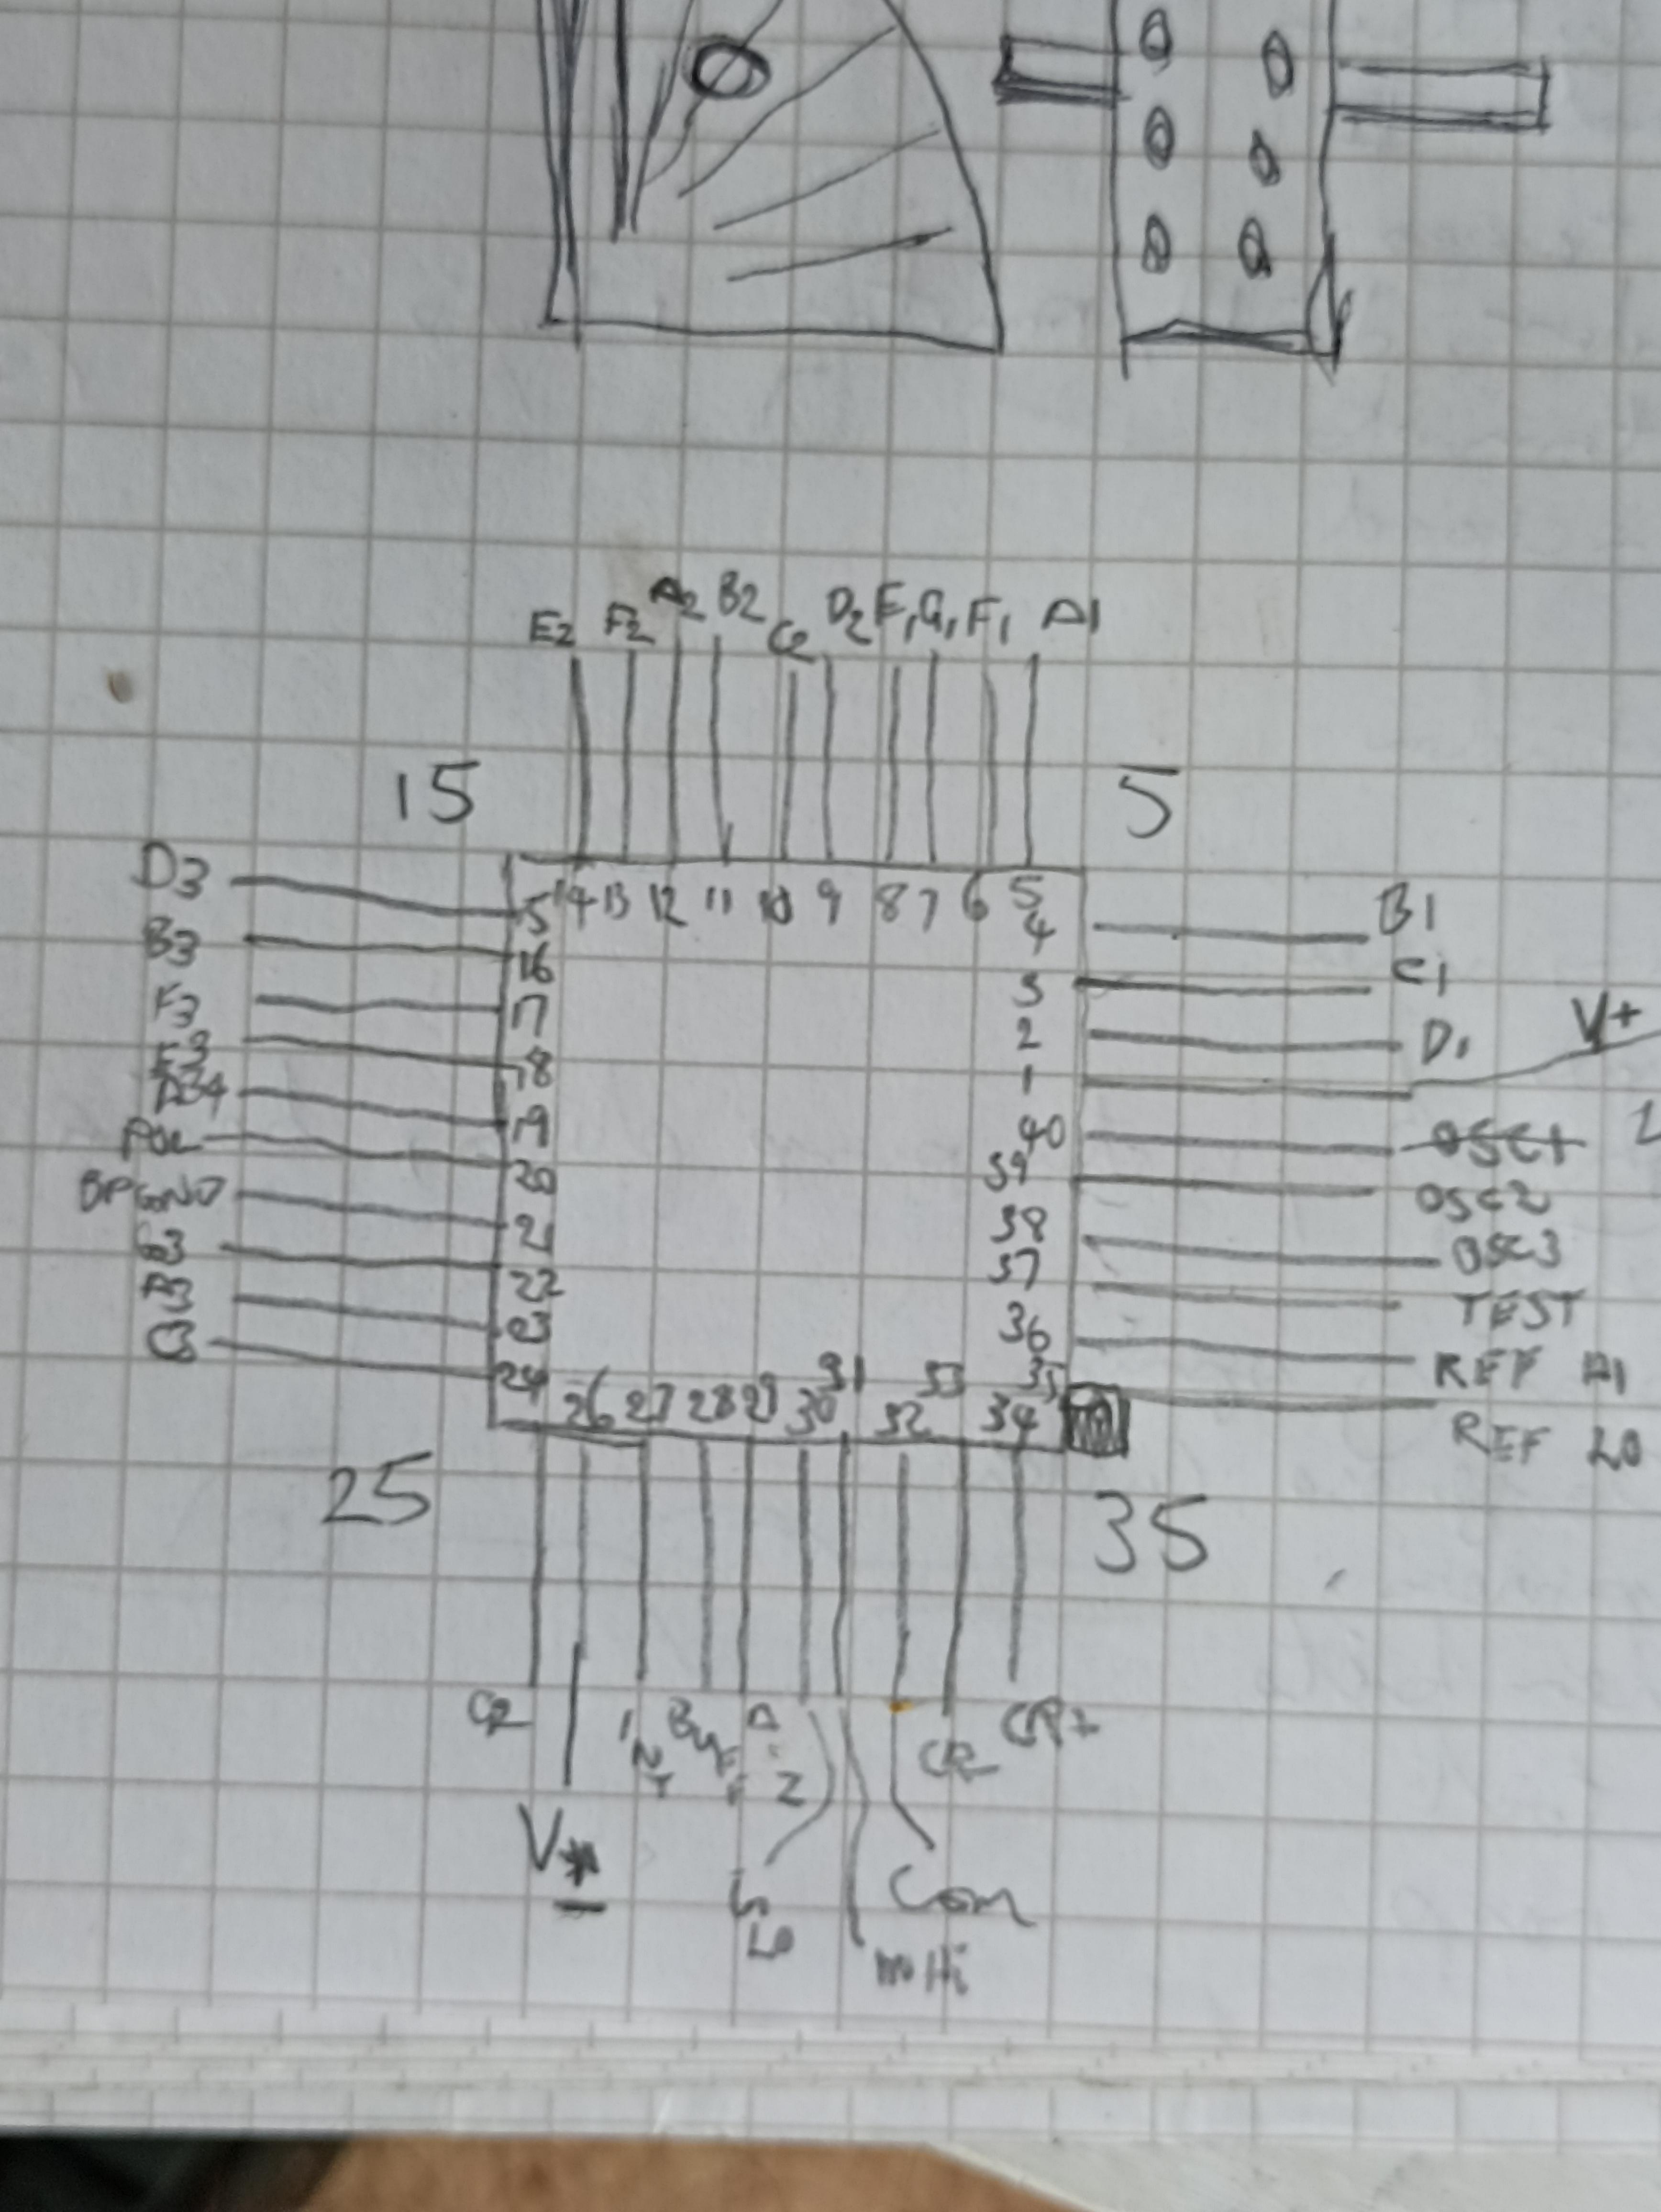 E2 F2 A2 B2 C2 D2 E1 G1 F1 A1
15 5
D3 15 14 13 12 11 10 9 8 7 6 5
4 B1
B3 16 3 C1
F3 17 2 D1 V+
E3 18 1
19 40 OSC1
POL 20 39 OSC2
BP GND 21 38 OSC3
G3 22 37 TEST
A3 23 36 REF HI
C3 24 35 REF LO
26 27 28 29 30 31 32 33 34
25 35
G2 INT BUFF A-Z CR CR+
V-
LO Com
Hi